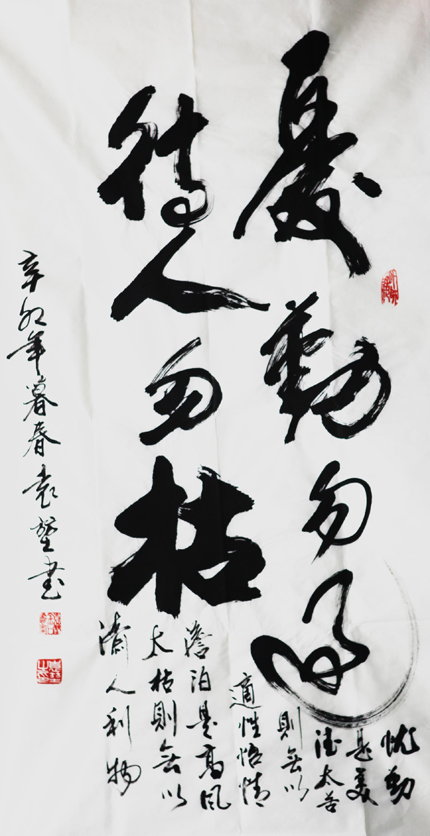 憂勤勿過
待人勿枯
忧勤
是美
德太苦
則無以
適性怡情
澹泊是高风
太枯則無以
濟人利物
辛卯年暮春袁書